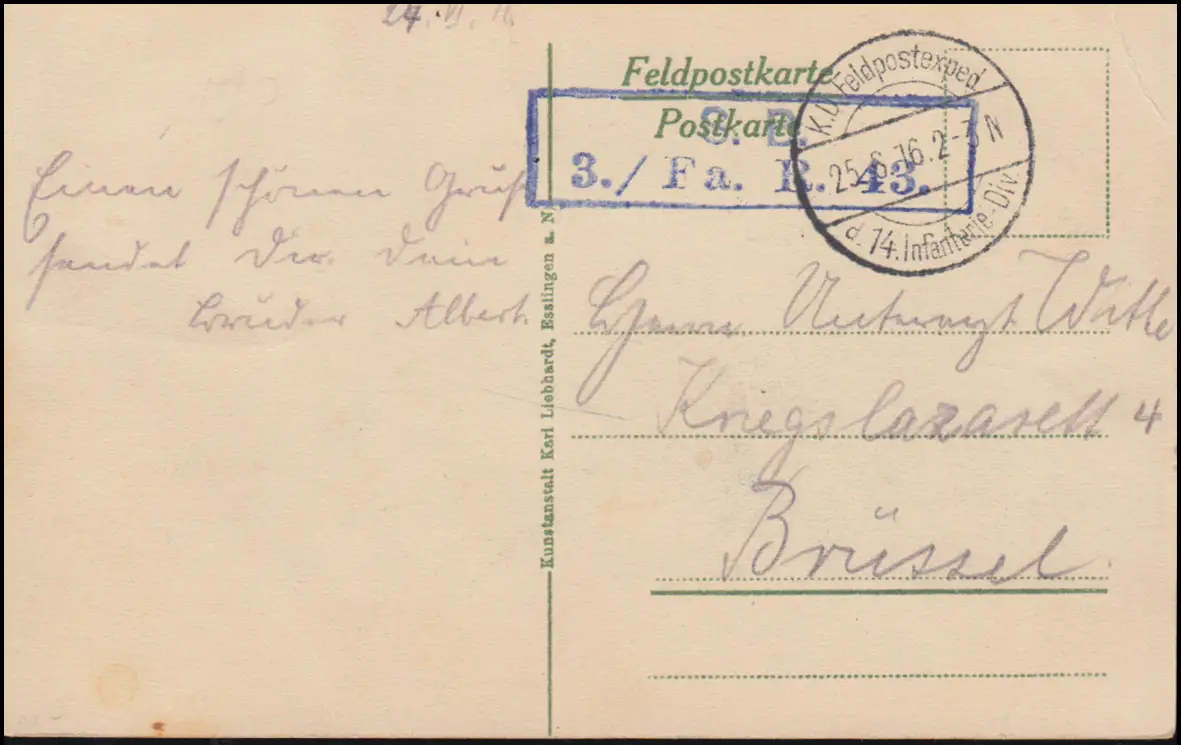 24. VI.
Feldpostkarte
Postkarte
S. B.
3./ Fa. R. 43.
K.D. Feldpostexped.
25.6.16. 2-3 N
d. 14. Infanterie-Div.
Einen schönen Gruß
sendet Dir Dein
Bruder Albert.
Herrn Unterarzt Witte
Kriegslazarett 4
Brüssel
Kunstanstalt Karl Liebhardt, Esslingen a. N.